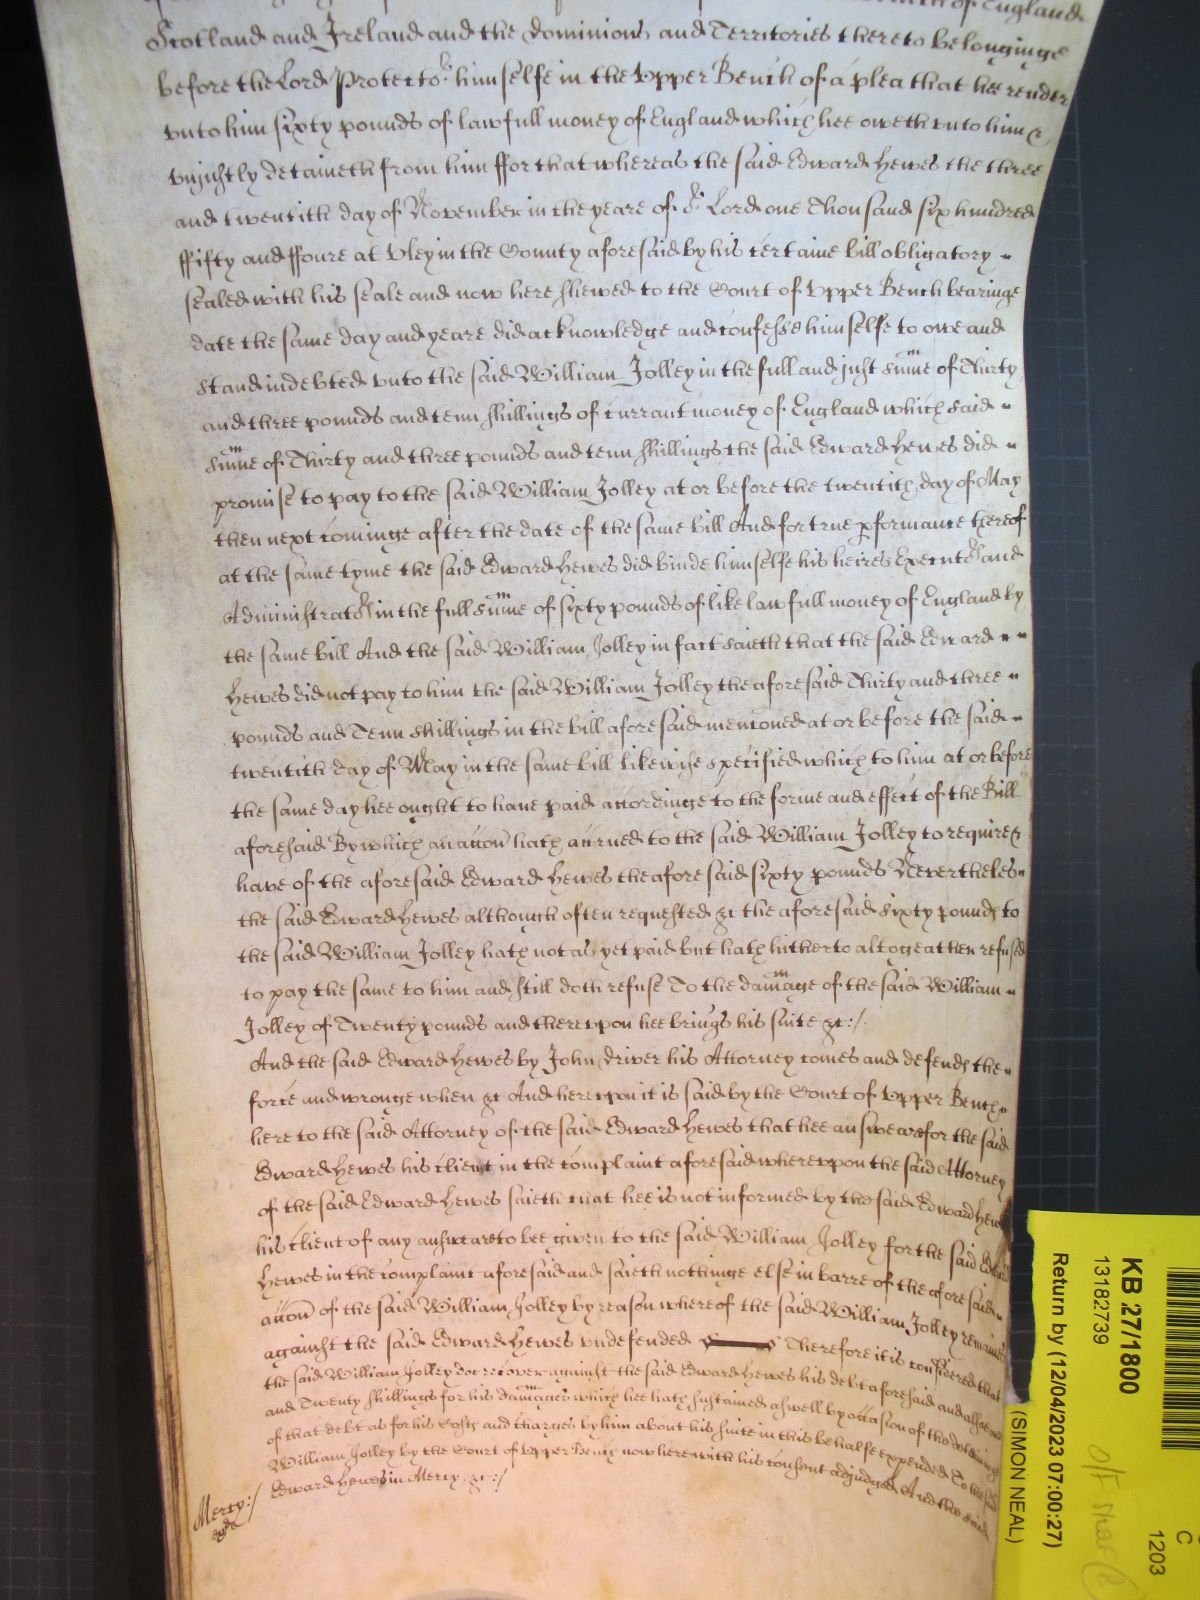 of England
Scotland and Ireland and the Dominions and Territories thereto belonginge
before the Lord Protector himselfe in the Upper Bench of a plea that hee render
vnto him sixty pounds of lawfull money of England which hee oweth vnto him &
vniustly detaineth from him ffor that whereas the said Edward Hewes the three
and twentith day of November in the yeare of or Lord one Thousand six hundred
ffifty and ffoure at Vley in the County aforesaid by his certaine bill obligatory
sealed with his seale and now here shewed to the Court of Vpper Bench bearinge
date the same day and yeare did acknowledge and confesse himselfe to owe and
stand indebted vnto the said William Jolley in the full and just sume of Thirty
and three pounds and tenn shillings of currant money of England which said
sume of Thirty and three pounds and tenn shillings the said Edward Hewes did
promise to pay to the said William Jolley at or before the twentith day of May
then next cominge after the date of the same bill And for true pformance thereof
at the same tyme the said Edward Hewes did binde himselfe his heires Executors and
Administrators in the full sume of sixty pounds of like lawfull money of England by
the same bill And the said William Jolley in fact saieth that the said Edward
Hewes did not pay to him the said William Jolley the aforesaid Thirty and three
pounds and Tenn shillings in the bill aforesaid mencioned at or before the said
twentith day of May in the same bill likewise specified which to him at or before
the same day hee ought to have paid accordinge to the forme and effect of the Bill
aforesaid By which an accon hath accrued to the said William Jolley to require &
have of the aforesaid Edward Hewes the aforesaid sixty pounds Neverthelesse
the said Edward Hewes although often requested &c the aforesaid sixty pounds to
the said William Jolley hath not as yet paid but hath hitherto altogeather refused
to pay the same to him and still doth refuse To the damage of the said William
Jolley of Twenty pounds and therevpon hee brings his suite &c:/
And the said Edward Hewes by John Driver his Attorney comes and defends the
force and wronge when &c And herevpon it is said by the Court of Vpper Bench
here to the said Attorney of the said Edward Hewes that hee answeare for the said
Edward Hewes his client in the complaint aforesaid wherevpon the said Attorney
of the said Edward Hewes saieth that hee is not informed by the said Edward Hewes
his client of any answeare to bee given to the said William Jolley for the said Edward
Hewes in the complaint aforesaid and saieth nothinge else in barre of the aforesaid
accon of the said William Jolley by reason whereof the said William Jolley remaines
against the said Edward Hewes vndefended Therefore it is considered that
the said William Jolley doe recover against the said Edward Hewes his debt aforesaid and alsoe
and Twenty shillings for his damages which hee hath sustained aswell by occasion of the deteininge
of that debt as for his Costs and charges by him about his suite in this behalfe expended To the said
William Jolley by the Court of Vpper Bench now here with his consent adjudged And the said
Edward Hewes in Mercy &c:/
Mercy:/
KB 27/1800
13182739
Return by (12/04/2023 07:00:27)
(SIMON NEAL)
C
1203